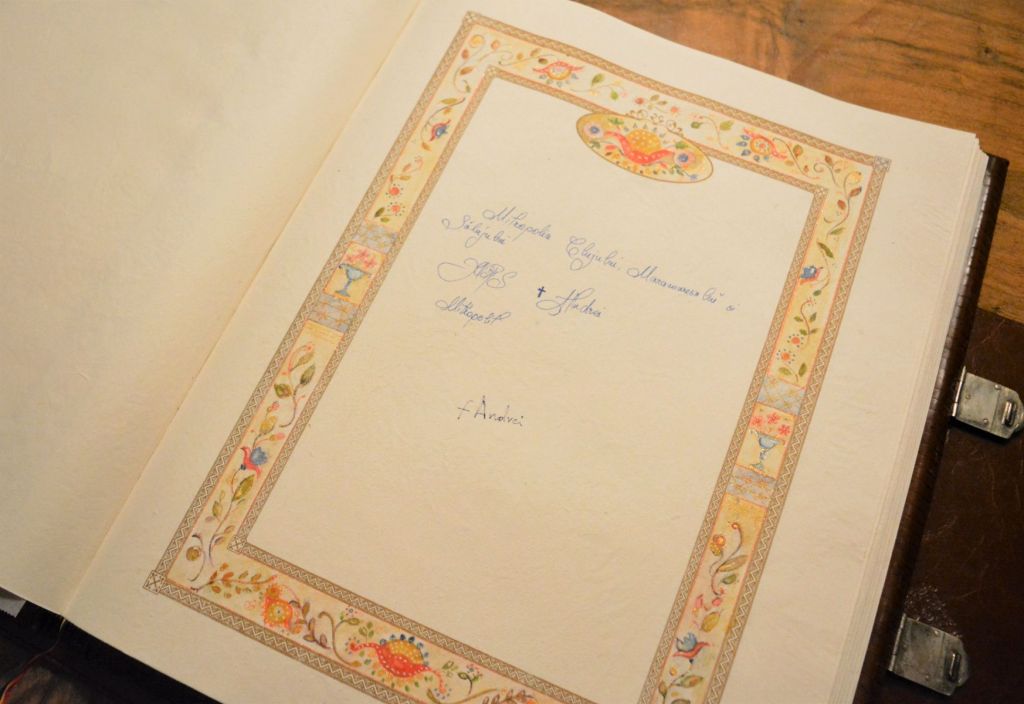 Mitropolia Clujului, Maramureșului și
Sălajului
ÎPS † Andrei
Mitropolit
† Andrei